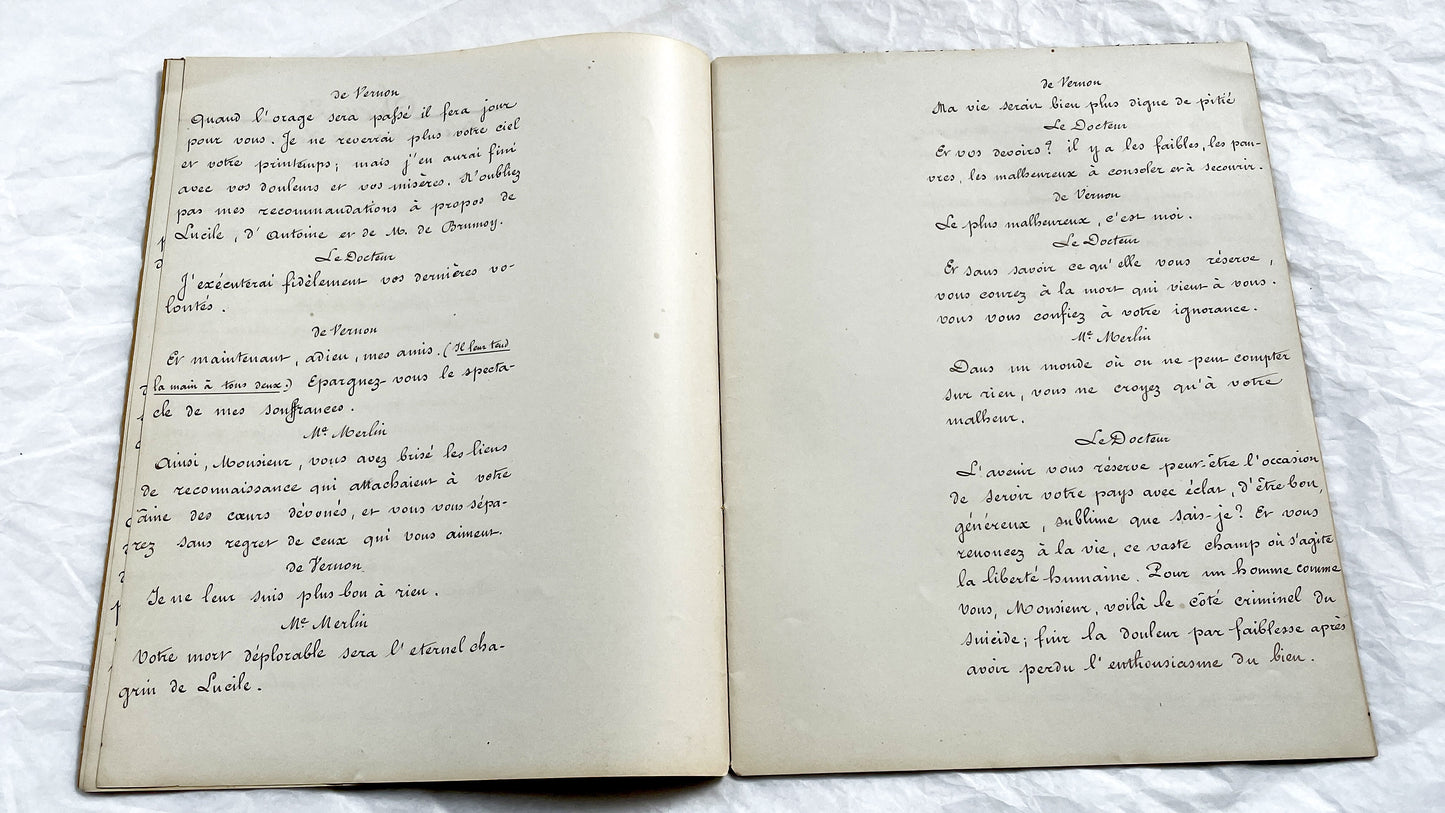 de Vernon
Quand l'orage sera passé il fera jour
pour vous. Je ne reverrai plus votre ciel
et votre printemps; mais j'en aurai fini
avec vos douleurs et vos misères. N'oubliez
pas mes recommandations à propos de
Lucile, d'Antoine et de M. de Brumoy.
Le Docteur
J'exécuterai fidèlement vos dernières vo-
lontés.
de Vernon
Et maintenant, adieu, mes amis. (Il leur tend
la main à tous deux.) Epargnez-vous le specta-
cle de mes souffrances.
Me Merlin
Ainsi, Monsieur, vous avez brisé les liens
de reconnaissance qui attachaient à votre
âme des cœurs dévoués, et vous vous sépa-
rez sans regret de ceux qui vous aiment.
de Vernon
Je ne leur suis plus bon à rien.
Me Merlin
Votre mort déplorable sera l'eternel cha-
grin de Lucile.
de Vernon
Ma vie serait bien plus digne de pitié
Le Docteur
Et vos devoirs? il y a les faibles, les pau-
vres, les malheureux à consoler et à secourir.
de Vernon
Le plus malheureux, c'est moi.
Le Docteur
Et sans savoir ce qu'elle vous réserve,
vous courez à la mort qui vient à vous.
vous vous confiez à votre ignorance.
Me Merlin
Dans un monde où on ne peut compter
sur rien, vous ne croyez qu'à votre
malheur.
Le Docteur
L'avenir vous réserve peut-être l'occasion
de servir votre pays avec éclat, d'être bon,
généreux, sublime que sais-je? Et vous
renoncez à la vie, ce vaste champ où s'agite
la liberté humaine. Pour un homme comme
vous, Monsieur, voilà le côté criminel du
suicide; fuir la douleur par faiblesse après
avoir perdu l'enthousiasme du bien.